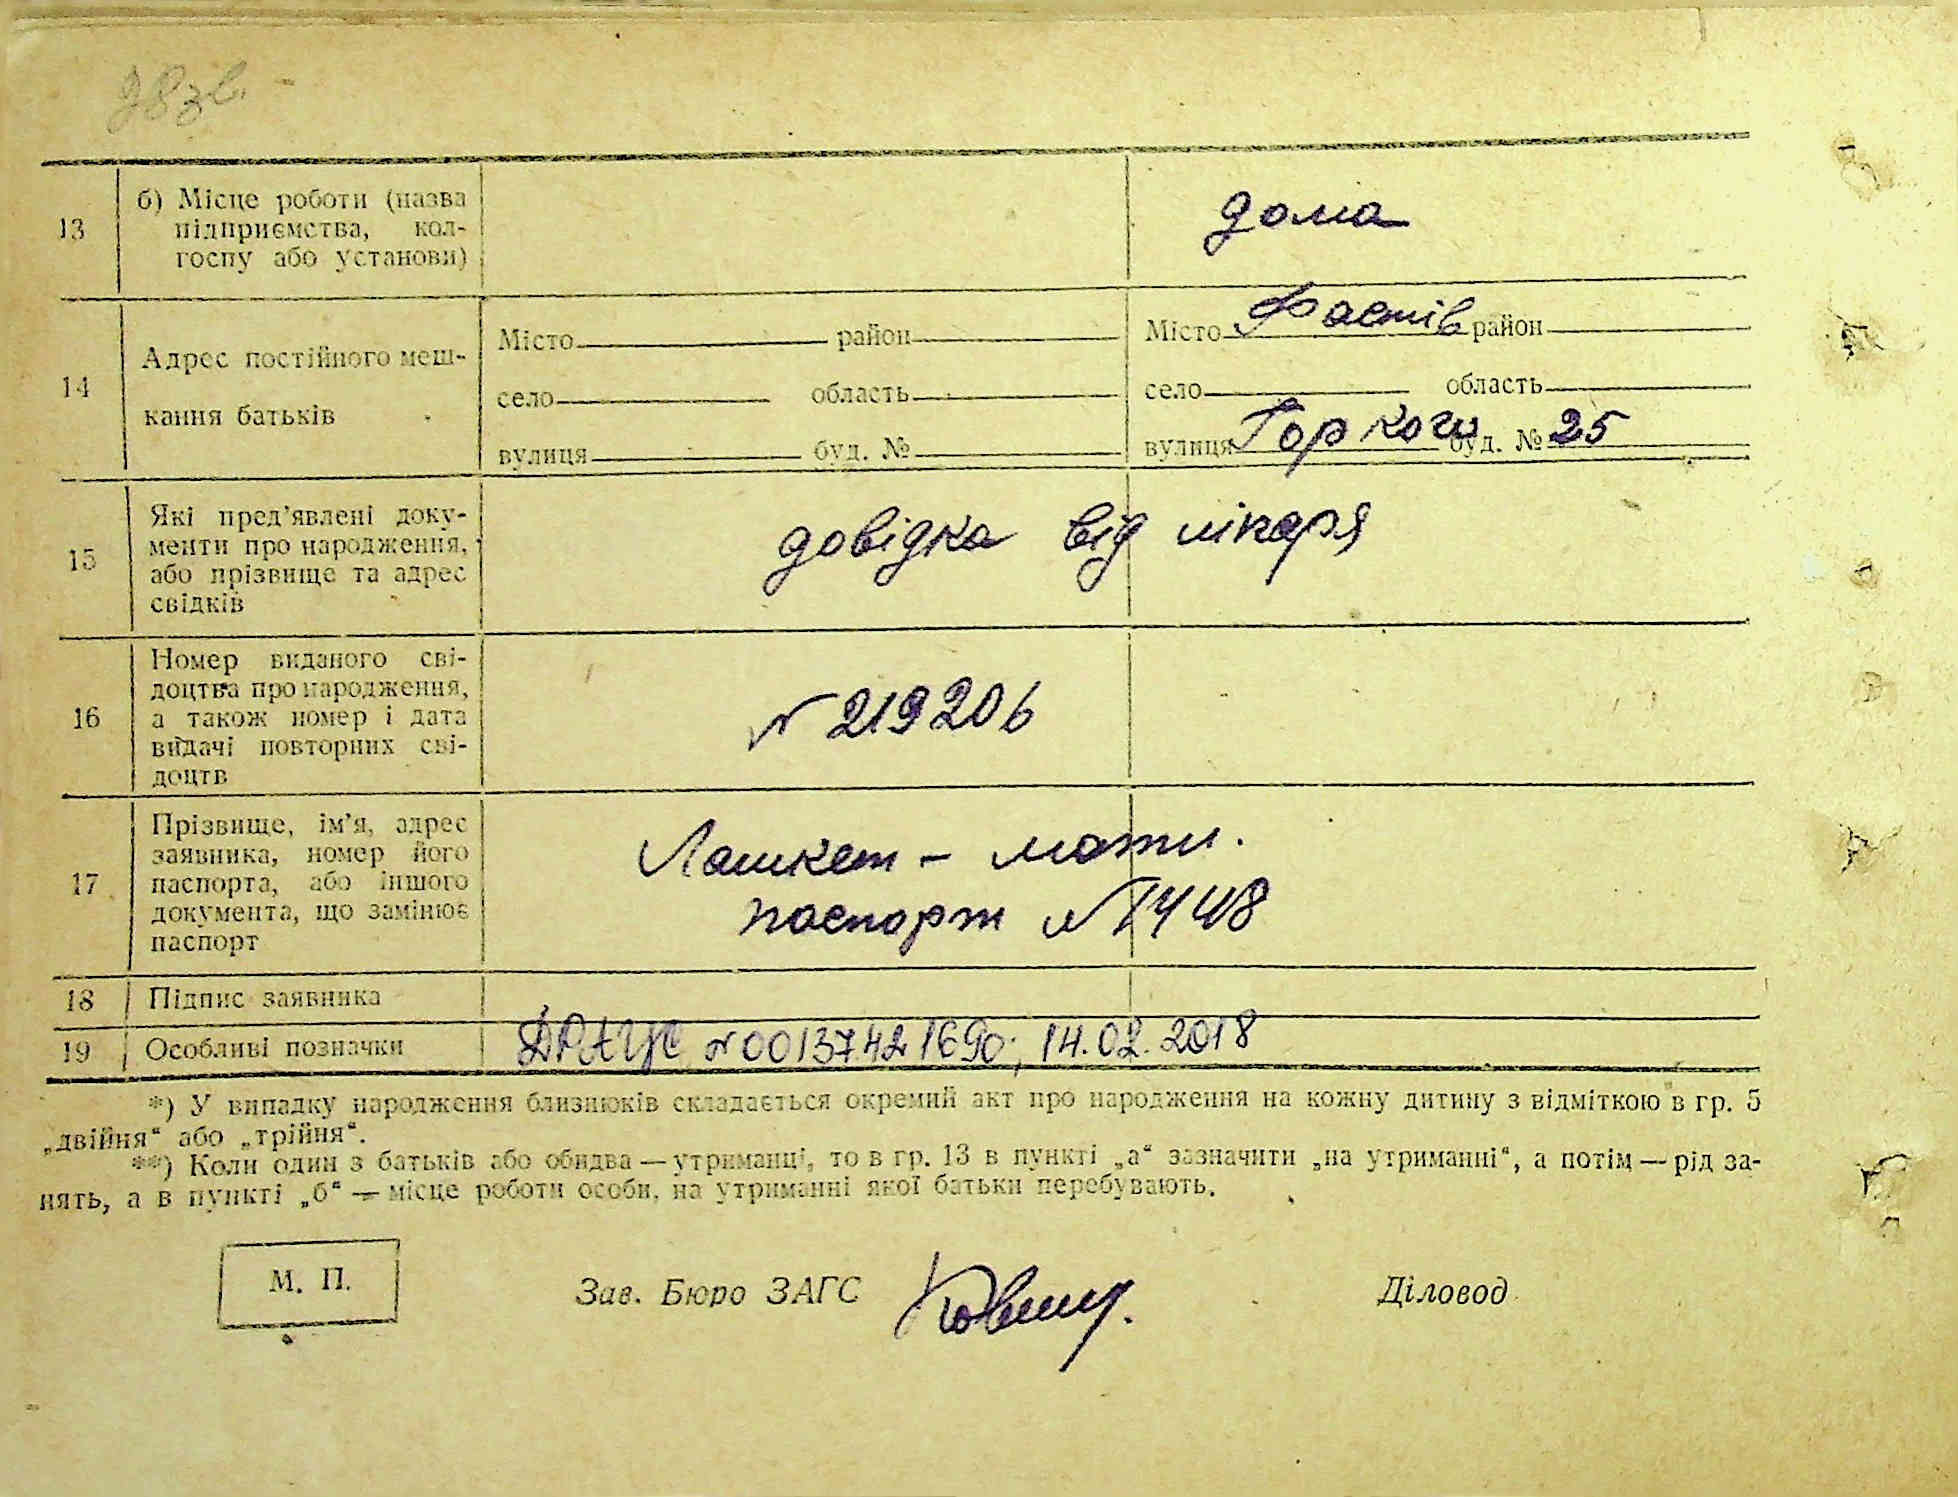 98зв.
13 б) Місце роботи (назва
підприємства, кол-
госпу або установи)
дома
14 Адрес постійного меш-
кання батьків
Місто район Місто Фастів район
село область село область
вулиця буд. № вулиця Горкого буд. № 25
15 Які пред’явлені доку-
менти про народження,
або прізвище та адрес
свідків
довідка від лікаря
16 Номер виданого сві-
доцтва про народження,
а також номер і дата
видачі повторних сві-
доцтв
№ 219206
17 Прізвище, ім’я, адрес
заявника, номер його
паспорта, або іншого
документа, що замінює
паспорт
Лашкет – мати.
паспорт №
18 Підпис заявника
19 Особливі позначки ДРАЦС № 00137421690; 14.02.2018
*) У випадку народження близнюків складається окремий акт про народження на кожну дитину з відміткою в гр. 5
„двійня“ або „трійня“.
**) Коли один з батьків або обидва — утриманці, то в гр. 13 в пункті „а“ зазначити „на утриманні“, а потім — рід за-
нять, а в пункті „б“ — місце роботи особи, на утриманні якої батьки перебувають.
М. П. Зав. Бюро ЗАГС Діловод